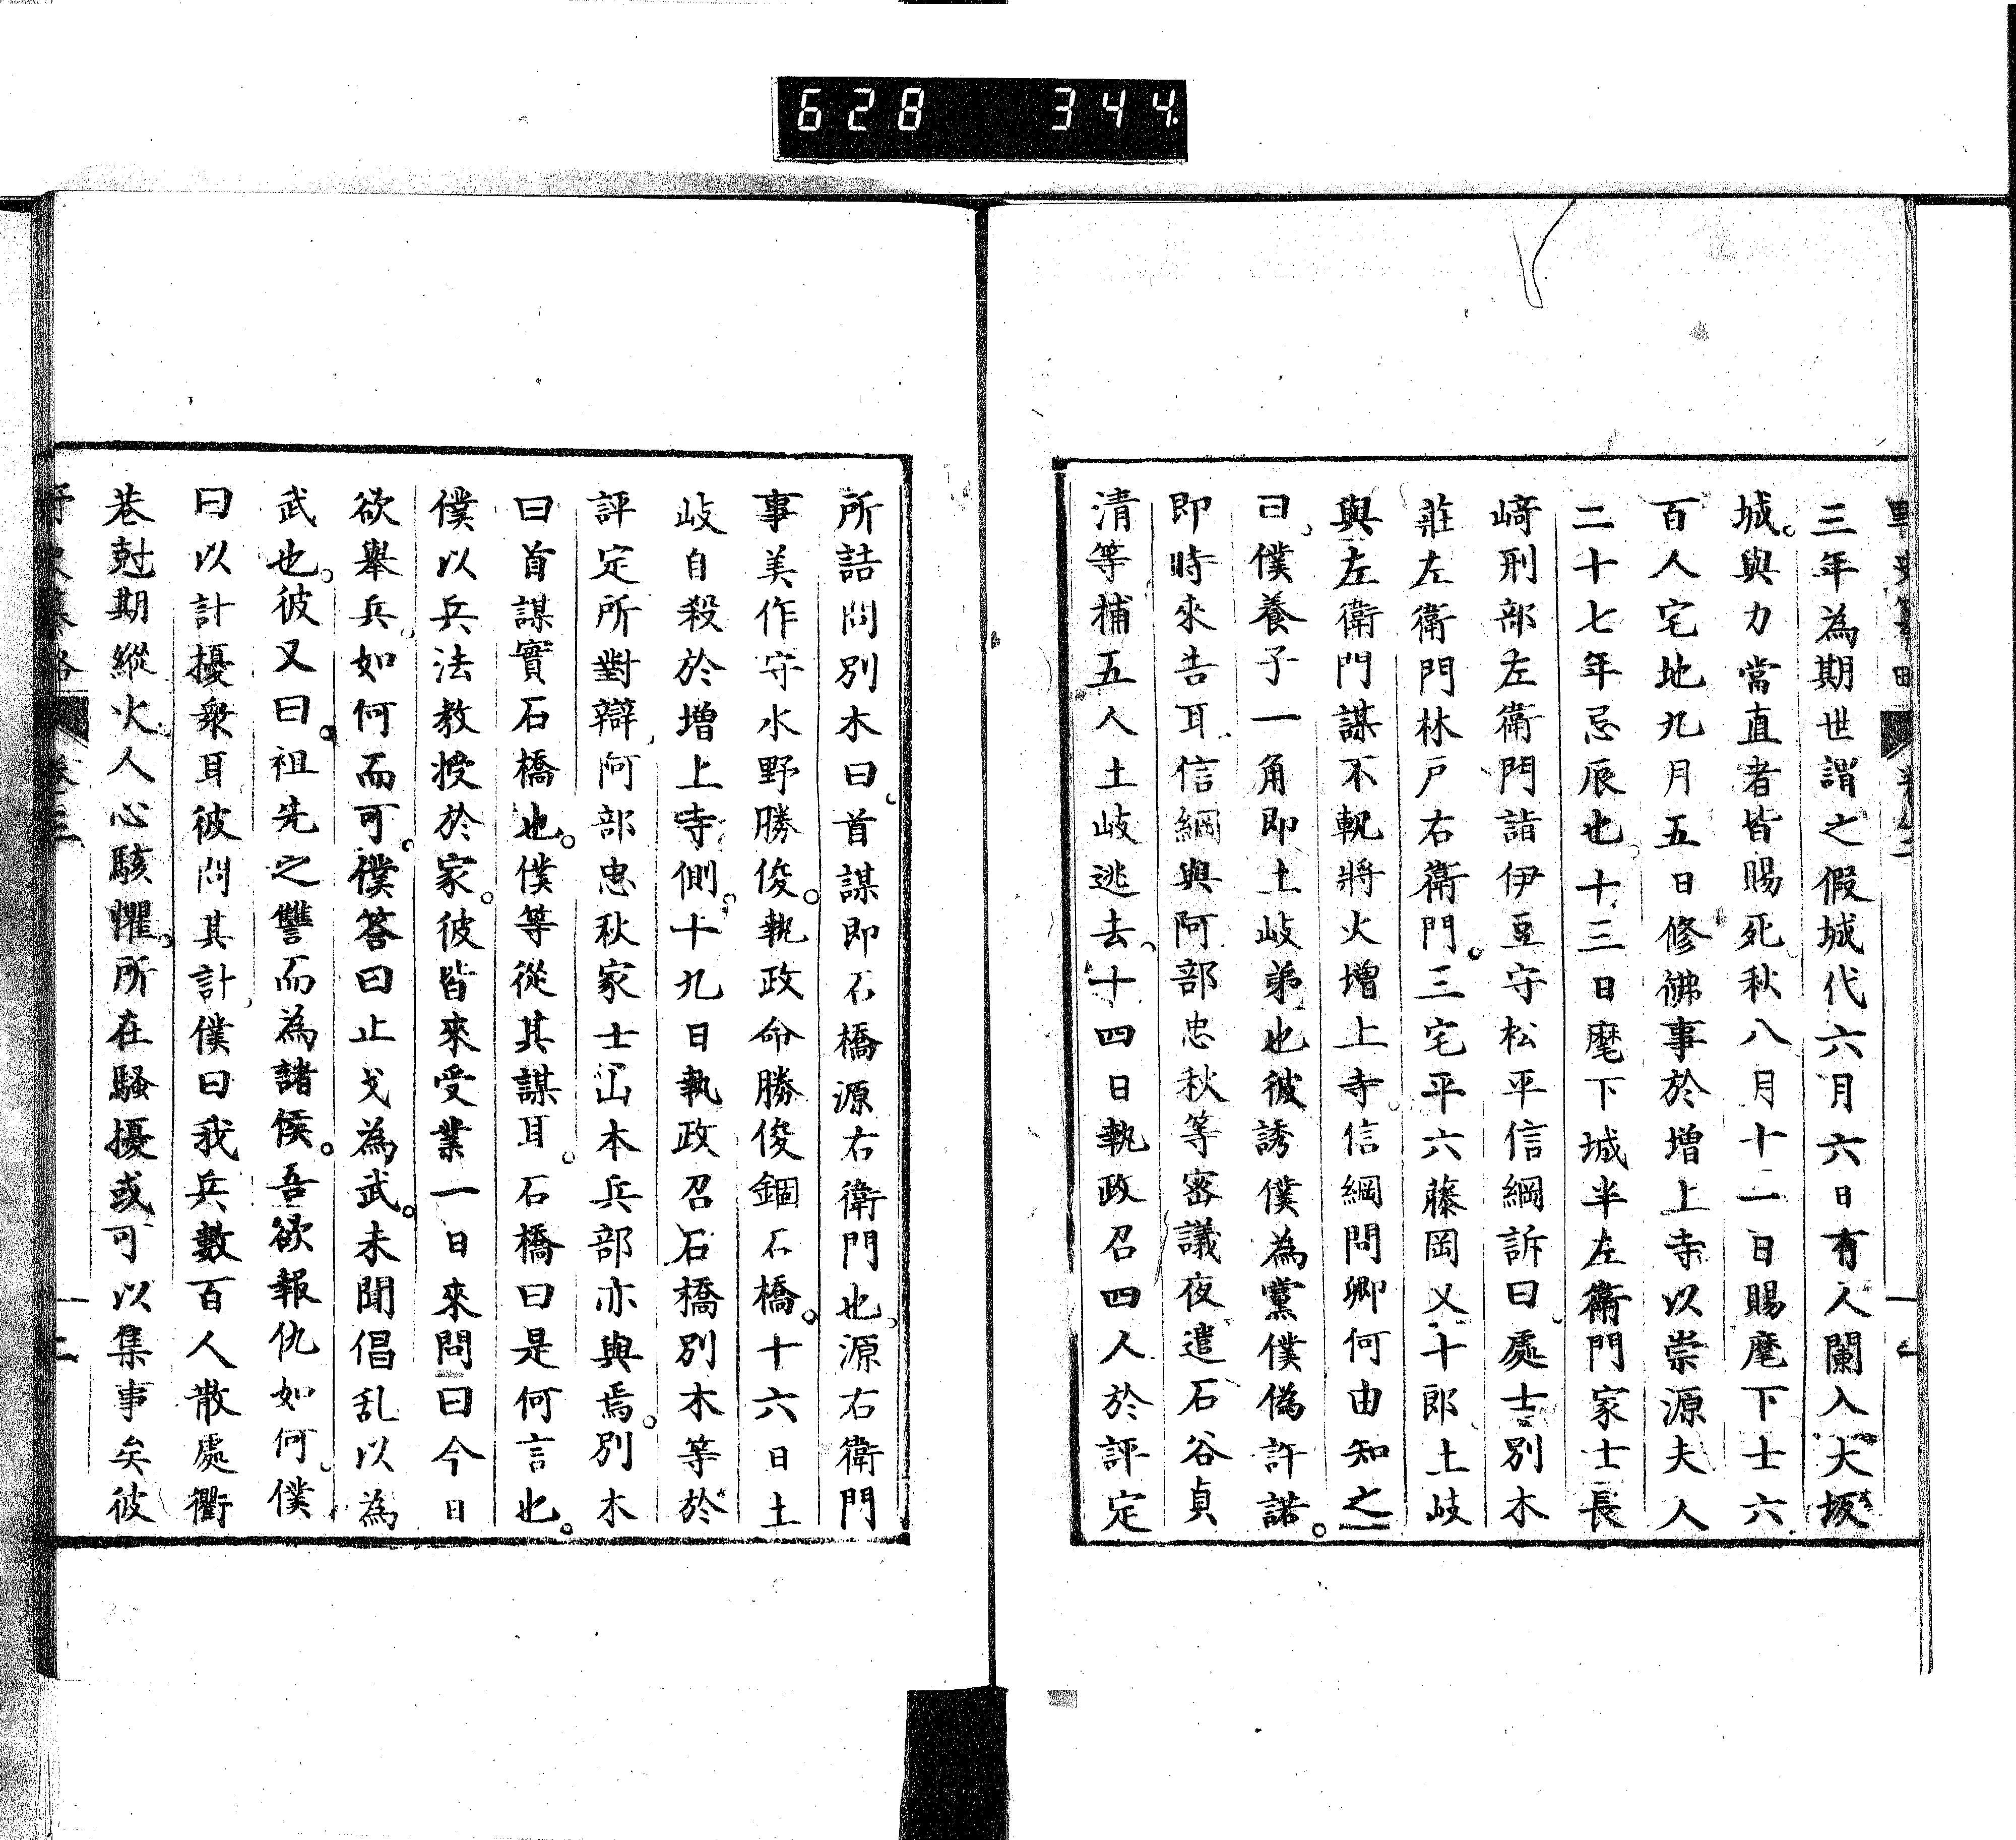 628 344
三年為期世謂之假城代六月六日有人闌入大坂
城。與力當直者皆賜死秋八月十二日賜麾下士六
百人宅地九月五日修佛事於增上寺以崇源夫人
二十七年忌辰也十三日麾下城半左衛門家士長
﨑刑部左衛門詣伊豆守松平信綱訴曰處士別木
莊左衛門林戶右衛門。三宅平六藤岡又十郎土岐
與左衛門謀不軌將火增上寺信綱問卿何由知之
曰僕養子一角即土岐弟也彼誘僕為黨僕偽許諾。
即時來告耳信綱與阿部忠秋等密議夜遣石谷貞
清等捕五人土岐逃去十四日執政召四人於評定
所詰問別木曰首謀即石橋源右衛門也源右衛門
事美作守水野勝俊。執政命勝俊錮石橋。十六日土
岐自殺於增上寺側十九日執政召石橋別木等於
評定所對辯阿部忠秋家士山本兵部亦與焉。別木
曰首謀實石橋也。僕等從其謀耳。石橋曰是何言也。
僕以兵法教授於家。彼皆來受業一日來問曰今日
欲舉兵如何而可。僕答曰止戈為武。未聞倡乱以為
武也。彼又曰。祖先之讐而為諸侯。吾欲報仇如何僕
曰以計擾衆耳彼問其計僕曰我兵數百人散處衢
巷尅期縱火人心駭懼。所在騷擾或可以集事矣彼